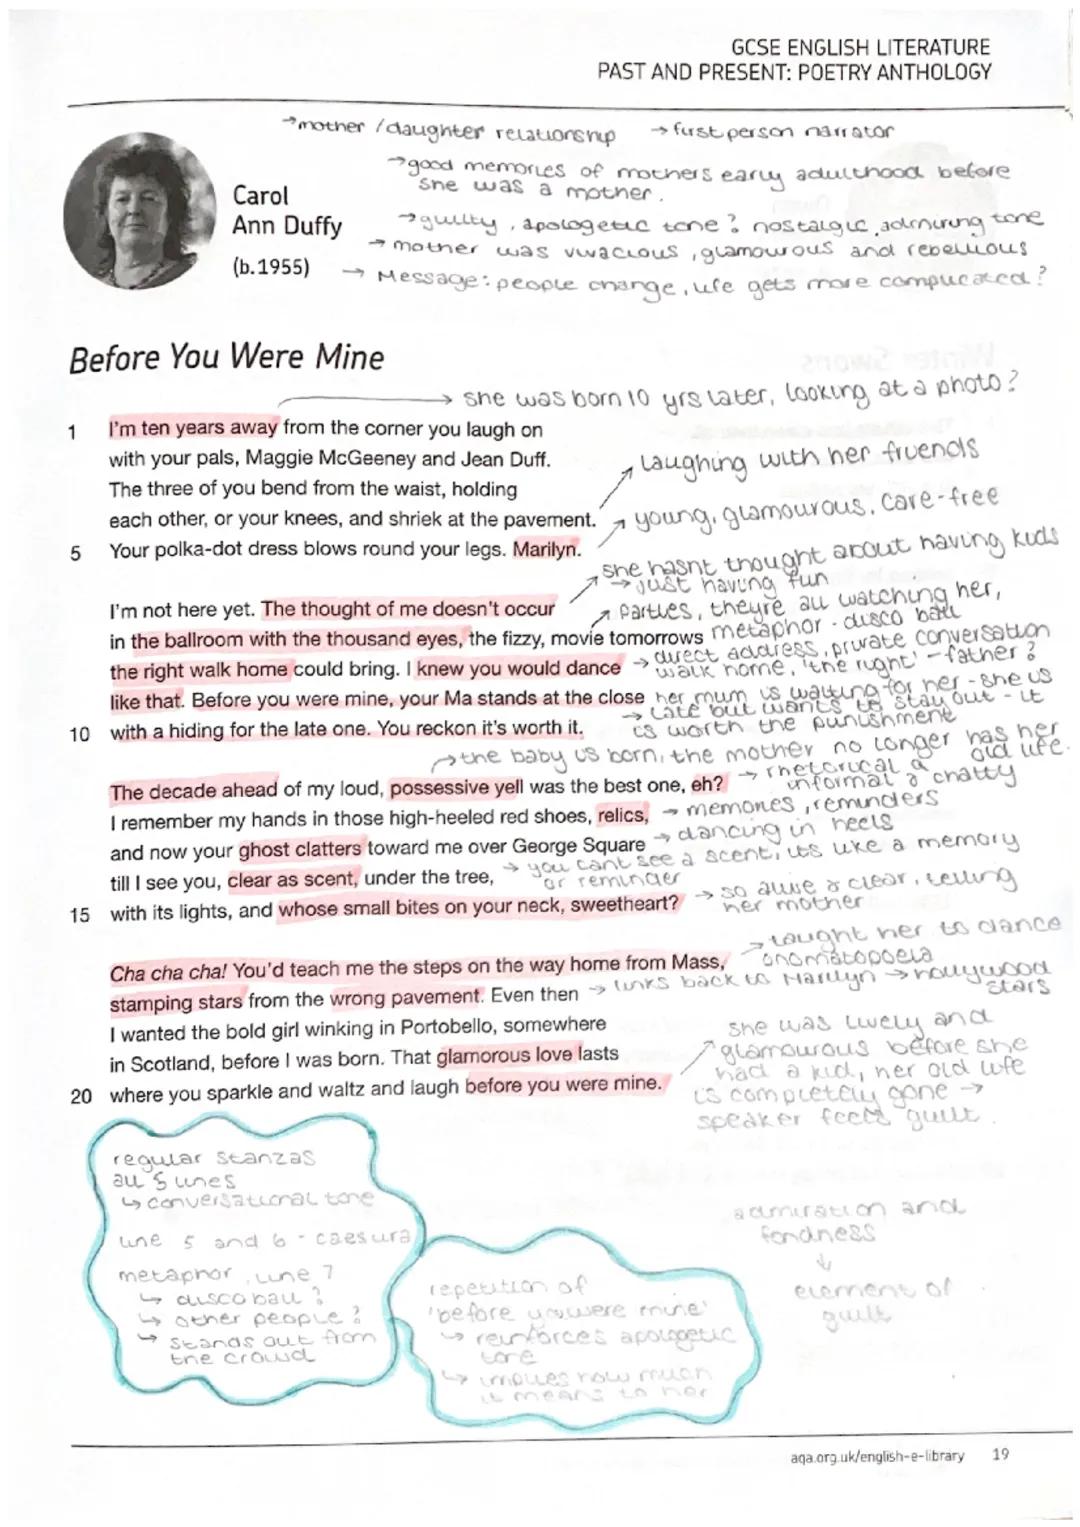 GCSE ENGLISH LITERATURE
PAST AND PRESENT: POETRY ANTHOLOGY
→mother / daughter relationship → first person narrator
→good memories of mothers early adulthood before
she was a mother.
→guilty, apologetic tone? nostalgic, admiring tone
→ mother was vivacious, glamourous and rebellious
→ Message: people change, life gets more complicated?
Carol
Ann Duffy
(b.1955)
Before You Were Mine
→ she was born 10 yrs later, looking at a photo?
1 I'm ten years away from the corner you laugh on
with your pals, Maggie McGeeney and Jean Duff.
→ Laughing with her friends
The three of you bend from the waist, holding
each other, or your knees, and shriek at the pavement.
→ young, glamourous, care-free
5 Your polka-dot dress blows round your legs. Marilyn.
she hasnt thought about having kids
→ just having fun
I'm not here yet. The thought of me doesn't occur
→ parties, theyre all watching her,
in the ballroom with the thousand eyes, the fizzy, movie tomorrows
metaphor - disco ball
the right walk home could bring. I knew you would dance
→ direct address, private conversation
walk home, 'the right' - father?
like that. Before you were mine, your Ma stands at the close
her mum is waiting for her - she is
→ late but wants to stay out - it
10 with a hiding for the late one. You reckon it's worth it.
is worth the punishment
→the baby is born, the mother no longer has her
old life.
The decade ahead of my loud, possessive yell was the best one, eh?
→ rhetorical q
informal & chatty
I remember my hands in those high-heeled red shoes, relics,
→ memories, reminders
and now your ghost clatters toward me over George Square
→ dancing in heels
→ you cant see a scent, its like a memory
or reminder
till I see you, clear as scent, under the tree,
15 with its lights, and whose small bites on your neck, sweetheart?
→ so alive & clear, telling
her mother
→ taught her to dance
Cha cha cha! You'd teach me the steps on the way home from Mass,
onomatopoeia
stamping stars from the wrong pavement. Even then
→ links back to Marilyn → hollywood
stars
I wanted the bold girl winking in Portobello, somewhere
in Scotland, before I was born. That glamorous love lasts
20 where you sparkle and waltz and laugh before you were mine.
she was lively and
glamourous before she
had a kid, her old life
is completely gone →
speaker feels guilt.
regular stanzas
all 5 lines
↳ conversational tone
line 5 and 6 - caesura
metaphor, line 7
↳ disco ball?
↳ other people?
↳ stands out from
the crowd
repetition of
'before you were mine'
↳ reinforces apologetic
tone
↳ implies how much
it means to her
admiration and
fondness
↓
element of
guilt
aqa.org.uk/english-e-library 19